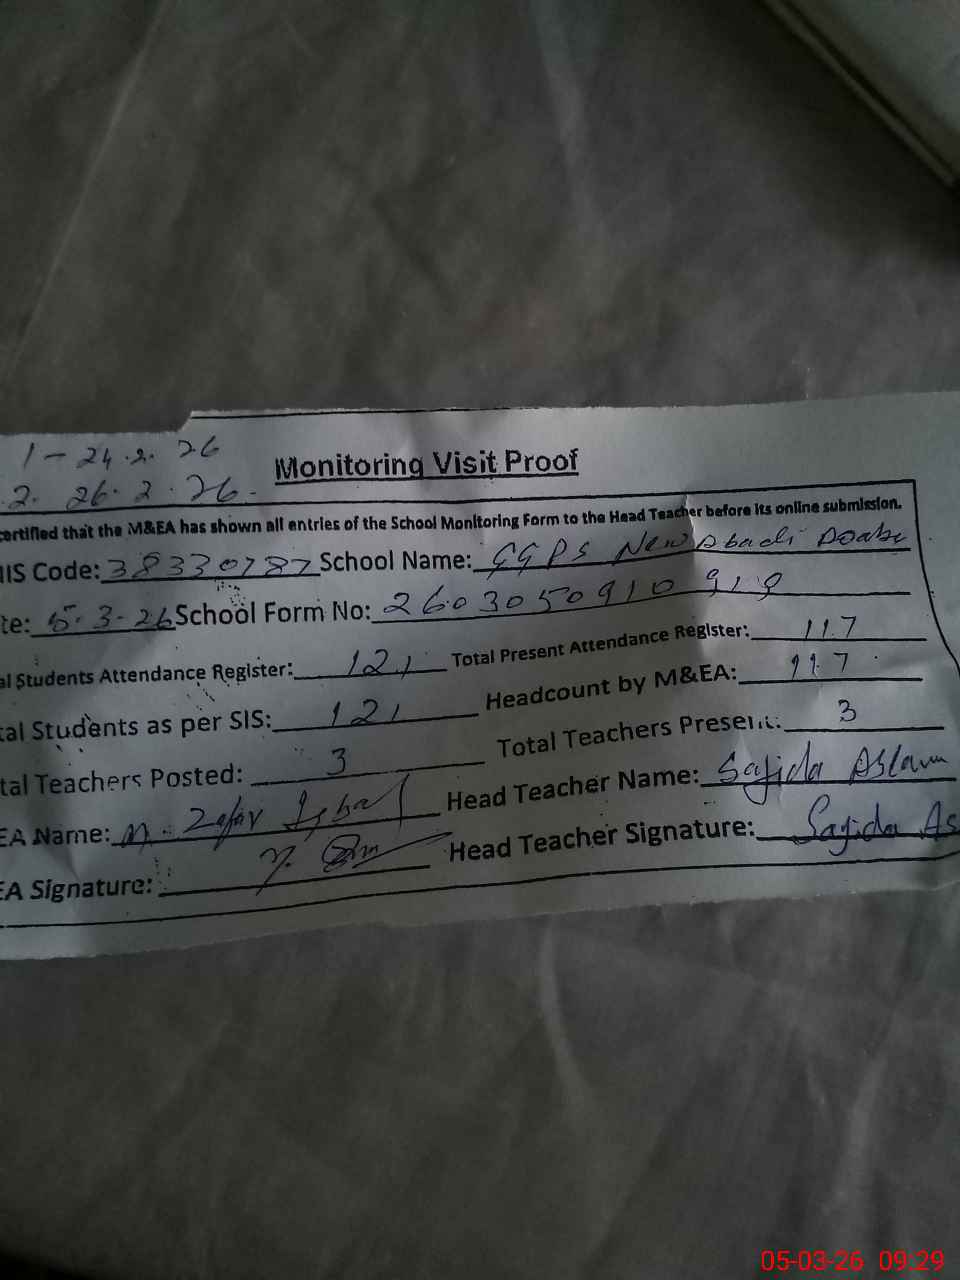 1 - 24.2.26
2. 26.2.26.
Monitoring Visit Proof
certified that the M&EA has shown all entries of the School Monitoring Form to the Head Teacher before its online submission.
IIS Code: 38330787 School Name: GGPS New Abadi Doaba
te: 5.3-26 School Form No: 2603050910919
al Students Attendance Register: 121 Total Present Attendance Register: 117
tal Students as per SIS: 121 Headcount by M&EA: 117
tal Teachers Posted: 3 Total Teachers Present: 3
EA Name: M. Zafar Iqbal Head Teacher Name: Sajida Aslam
EA Signature: Head Teacher Signature: Sajida As
05-03-26 09:29